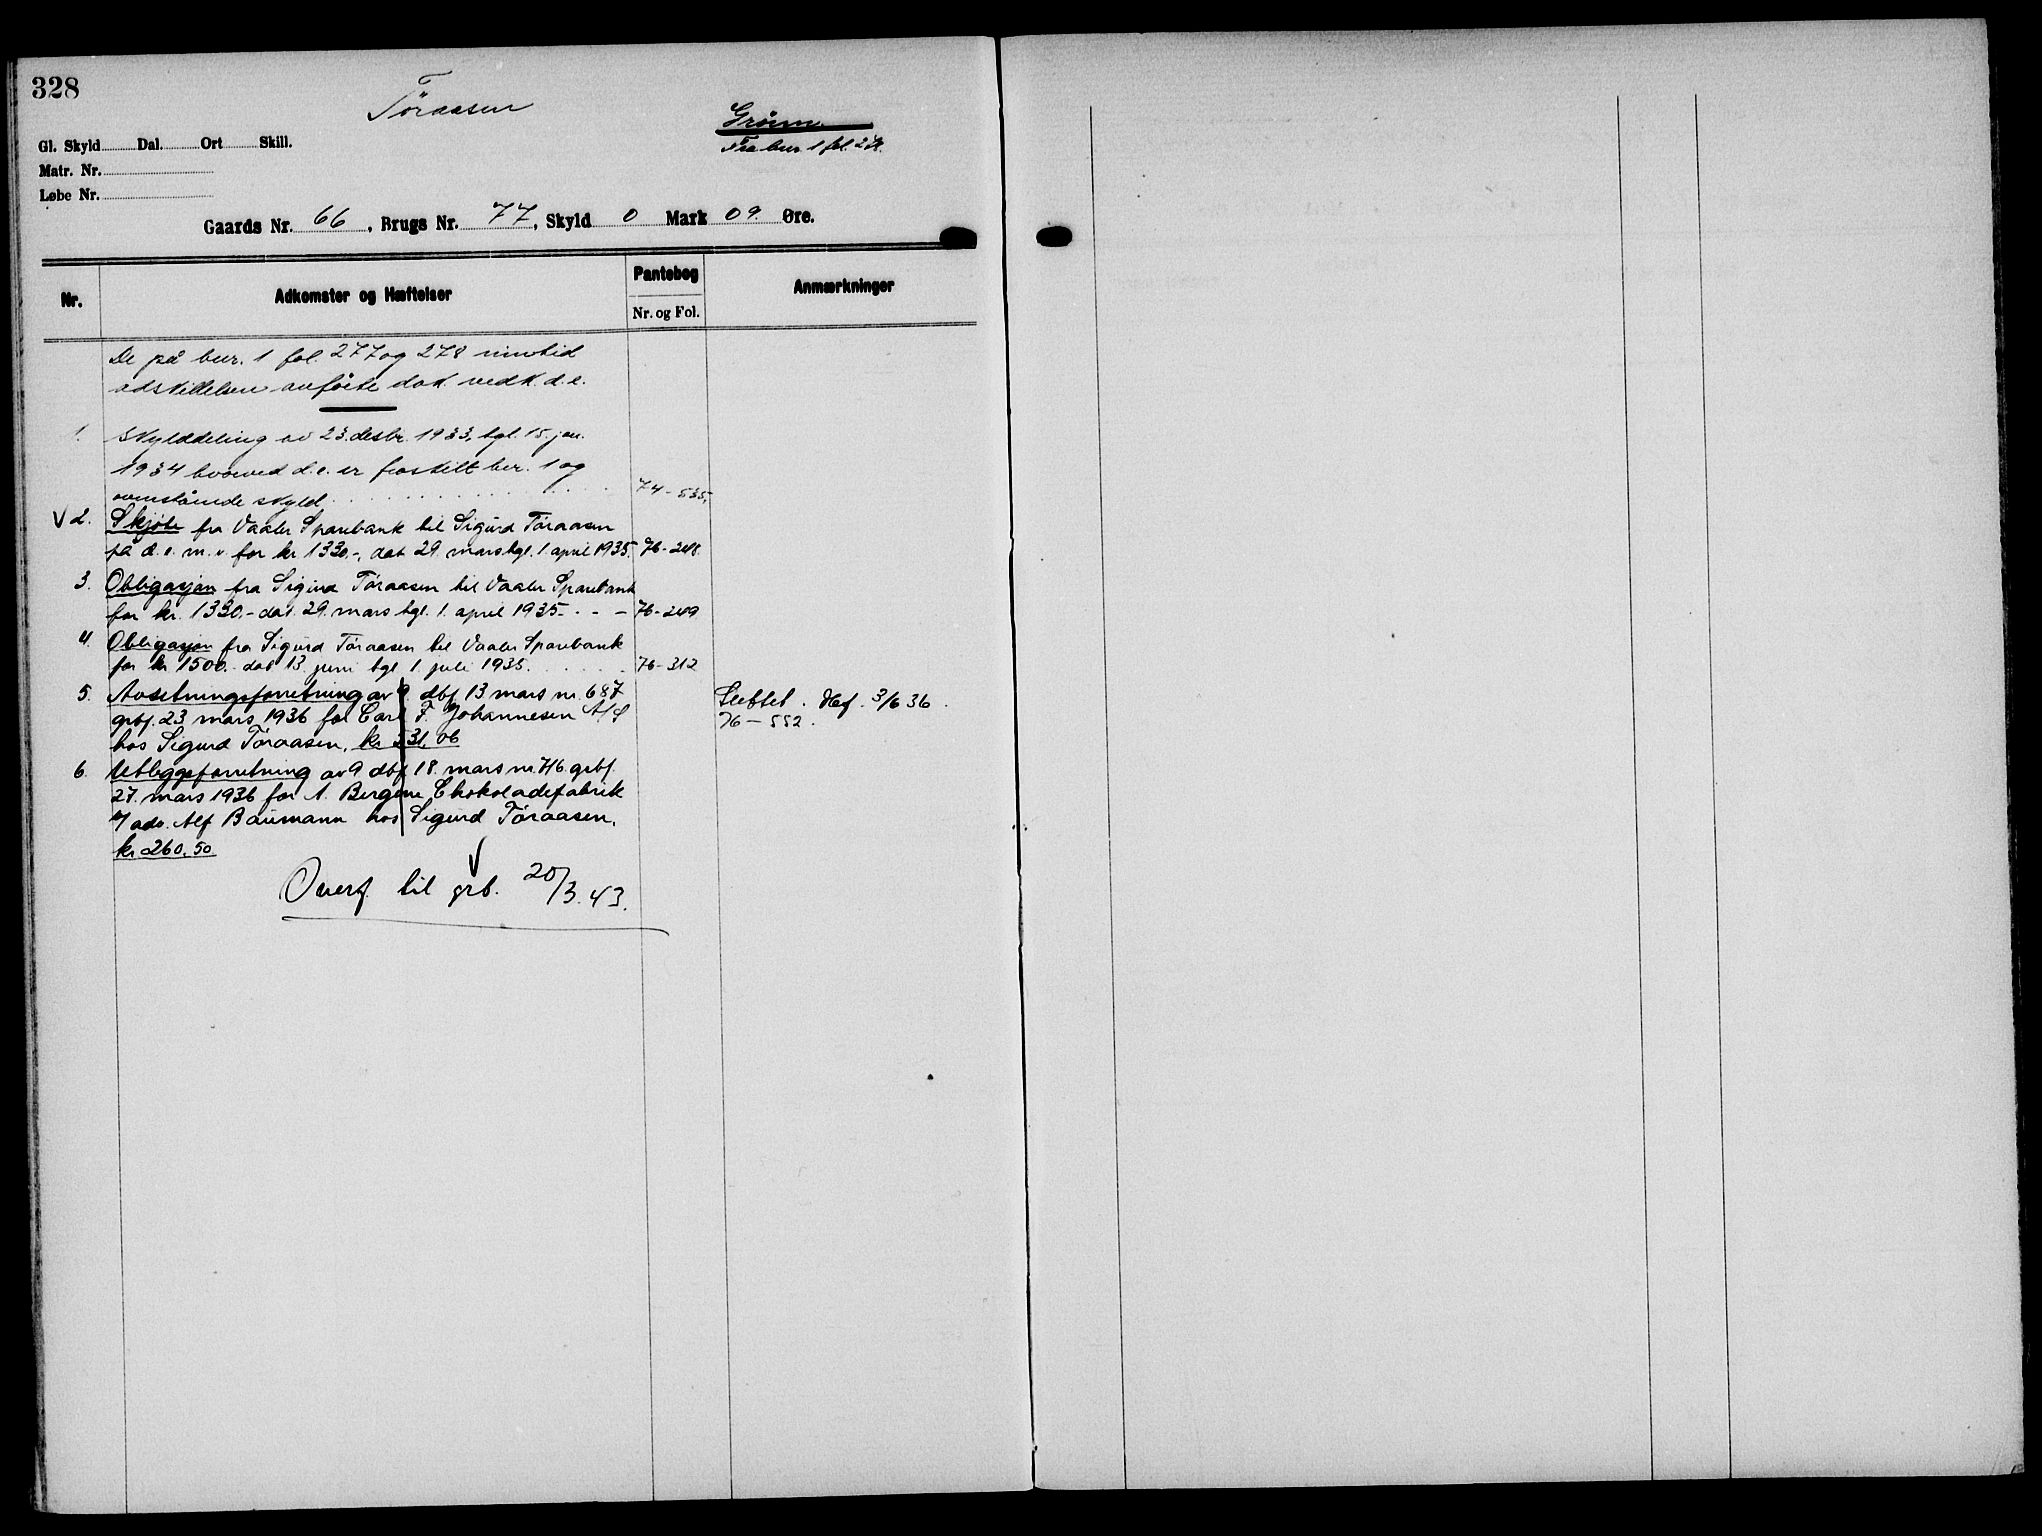 328
Tøraasen
Grønn
Fra bnr. 1 fol.
Gl. Skyld Dal. Ort Skill.
Matr. Nr.
Løbe Nr.
Gaards Nr. 66, Brugs Nr. 77, Skyld 0 Mark 09. Øre.
Nr. Adkomster og Hæftelser Pantebog Nr. og Fol. Anmærkninger
De på bnr. 1 fol. 277 og 278 inntid
adskillelsen anførte dok. vedk. d.e.
1. Skylddeling av 23. desbr. 1933, tgl. 15. jan.
1934 hvorved d.e. er fraskilt bnr. 1 og
ovenstående skyld 74-535,
V 2. Skjøte fra Vaaler Sparebank til Sigurd Tøraasen
på d.e. m.v. for kr 1330,-, dat 29. mars tgl. 1. april 1935. 76-248.
3. Obligasjon fra Sigurd Tøraasen til Vaaler Sparebank
for kr. 1330.- dat. 29. mars tgl. 1. april 1935 - 76-249
4. Obligasjon fra Sigurd Tøraasen til Vaaler Sparebank
for kr 1500.- dat 13 juni tgl 1. juli 1935. 76-312
5. Avsetningsforretning av 9. dbf 13 mars nr. 687 Slettet. Hef. 3/6 36.
grbf. 23 mars 1936 for Carl F. Johannesen A/S 76-552.
hos Sigurd Tøraasen, kr 531,06
6. Utleggsforretning av 9 dbf 18. mars nr. 716 grbf.
27. mars 1936 for A. Bergene Chokoladefabrik
v/ adv. Alf Baumann hos Sigurd Tøraasen.
kr 260.50
V
Overf. til grb. 20/3.43.